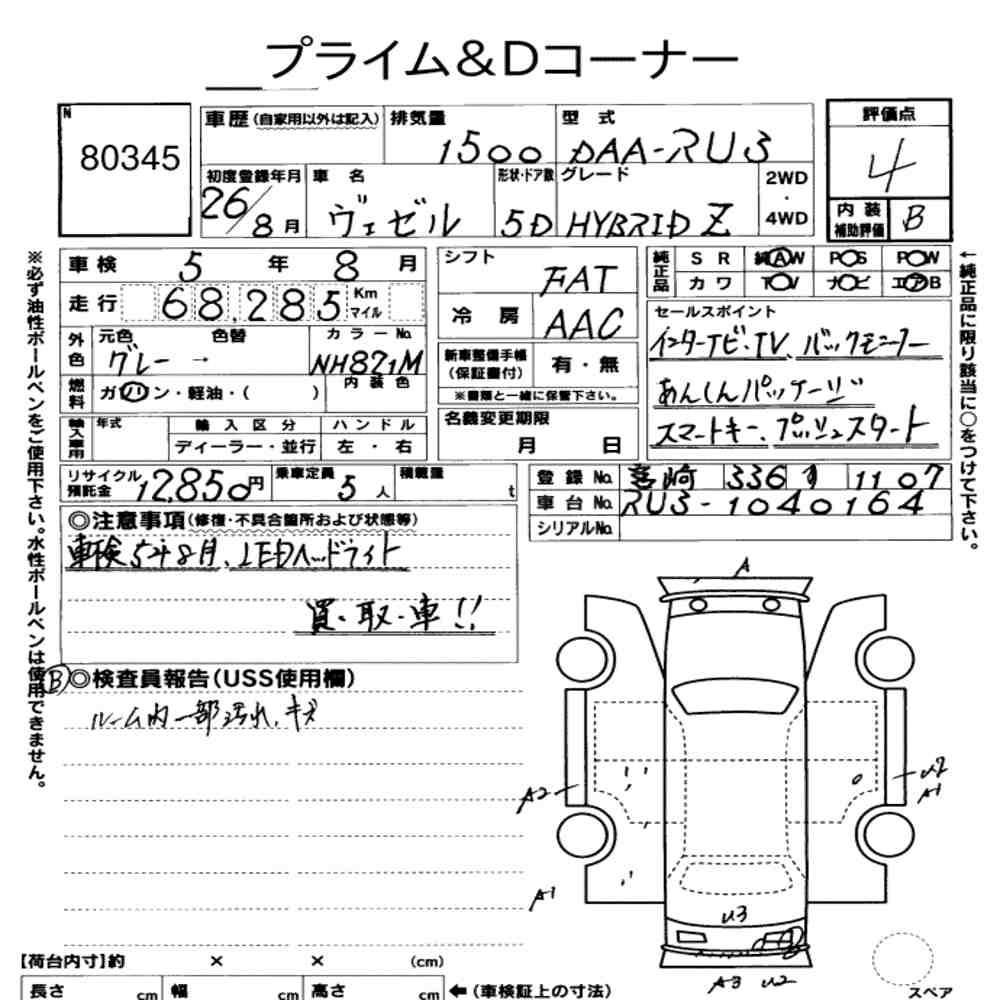 プライム&Dコーナー
N
80345
車歴(自家用以外は記入)
排気量 1500
型式 DAA-RU3
評価点 4
初度登録年月 26/8月
車名 ヴェゼル
形状・ドア数 5D
グレード HYBRID Z
2WD
・
4WD
内装補助評価 B
車検 5年8月
走行 68,285 Km マイル
外色 元色 グレー → 色替 カラーNo. NH821M
燃料 ガソリン・軽油・( ) 内装色
輸入車用 年式 輸入区分 ディーラー・並行 ハンドル 左・右
シフト FAT
冷房 AAC
新車整備手帳(保証書付) 有・無
※書類と一緒に保管下さい。
名義変更期限 月 日
純正品 SR 純AW PS PW
カワ TV ナビ エアB
セールスポイント
インターナビ・TV、バックモニター
あんしんパッケージ
スマートキー、プッシュスタート
リサイクル預託金 12,850円 乗車定員 5人 積載量 t
登録No. 宮崎 336 す 1107
車台No. RU3-1040164
シリアルNo.
◎注意事項(修復・不具合箇所および状態等)
車検5年8月、LEDヘッドライト
買・取・車!!
B ◎検査員報告(USS使用欄)
ルーム内一部汚れ、キズ
A
A2
U2
A1
A1
U3
A3 U2
スペア
【荷台内寸】約 × × (cm)
長さ cm 幅 cm 高さ cm ←(車検証上の寸法)
※必ず油性ボールペンをご使用下さい。水性ボールペンは使用できません。
←純正品に限り該当に○をつけて下さい。